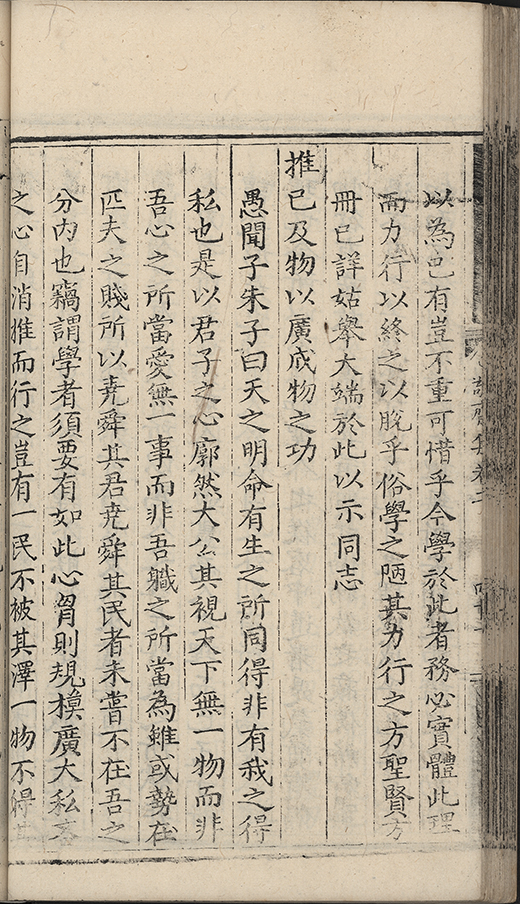 以為己有豈不重可惜乎今學於此者務必實體此理
而力行以終之以脫乎俗學之陋其力行之方聖賢方
冊已詳姑舉大端於此以示同志
推己及物以廣成物之功
愚聞子朱子曰天之明命有生之所同得非有我之得
私也是以君子之心廓然大公其視天下無一物而非
吾心之所當愛無一事而非吾職之所當為雖或勢在
匹夫之賤所以堯舜其君堯舜其民者未嘗不在吾之
分內也竊謂學者須要有如此心胷則規模廣大私吝
之心自消推而行之豈有一民不被其澤一物不得